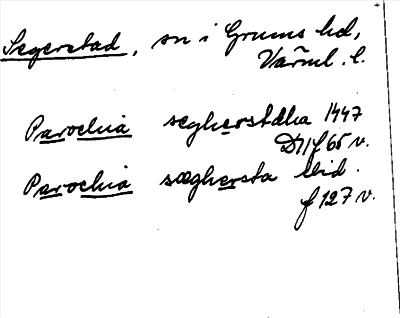 Segerstad, sn i Grums hd,
Värml. l.
Parochia seghersta̅dha 1447
D11 f 65 v.
Parochia sæghersta ibid.
f 127 v.